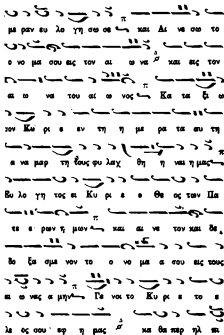 με ραν ευ λο γη σω σε και Αι νε σω το
ο νο μα σου εις τον αι ω να και εις τον
αι ω να του αι ω νος Κα τα ξι ω
σον Κυ ρι ε εν τη η με ρα ταυ τη
α να μαρ τη τους φυ λαχ θη η ναι η μας
Ευ λο γη τος ει Κυ ρι ε ο Θε ος των Πα
τε ε ρων η μων και αι νε τον και δε
δο ξα σμε νον το ο νο μα σου εις τους
αι ω νας α μην Γε νοι το Κυ ρι ε το ε
λε ος σου εφ η μας κα θα περ ηλ πι